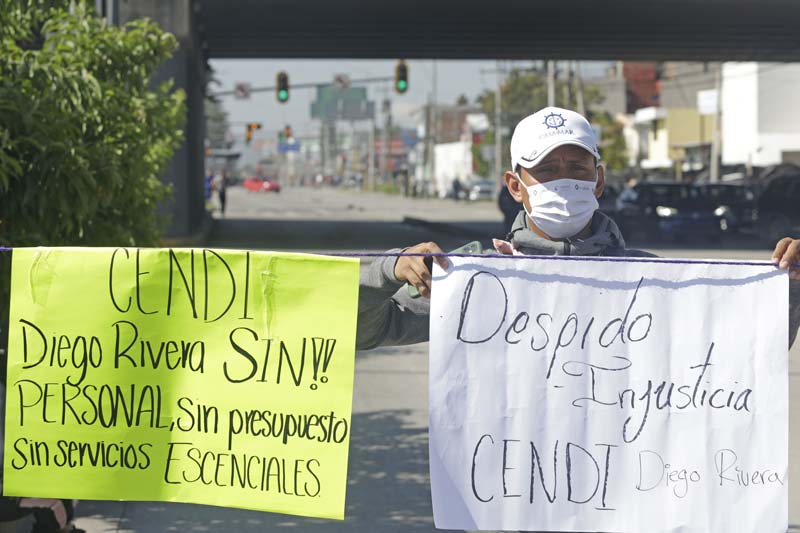 CENDI
Diego Rivera SIN!!
PERSONAL, sin presupuesto
Sin servicios ESCENCIALES.
Despido
-Injusticia
CENDI Diego Rivera